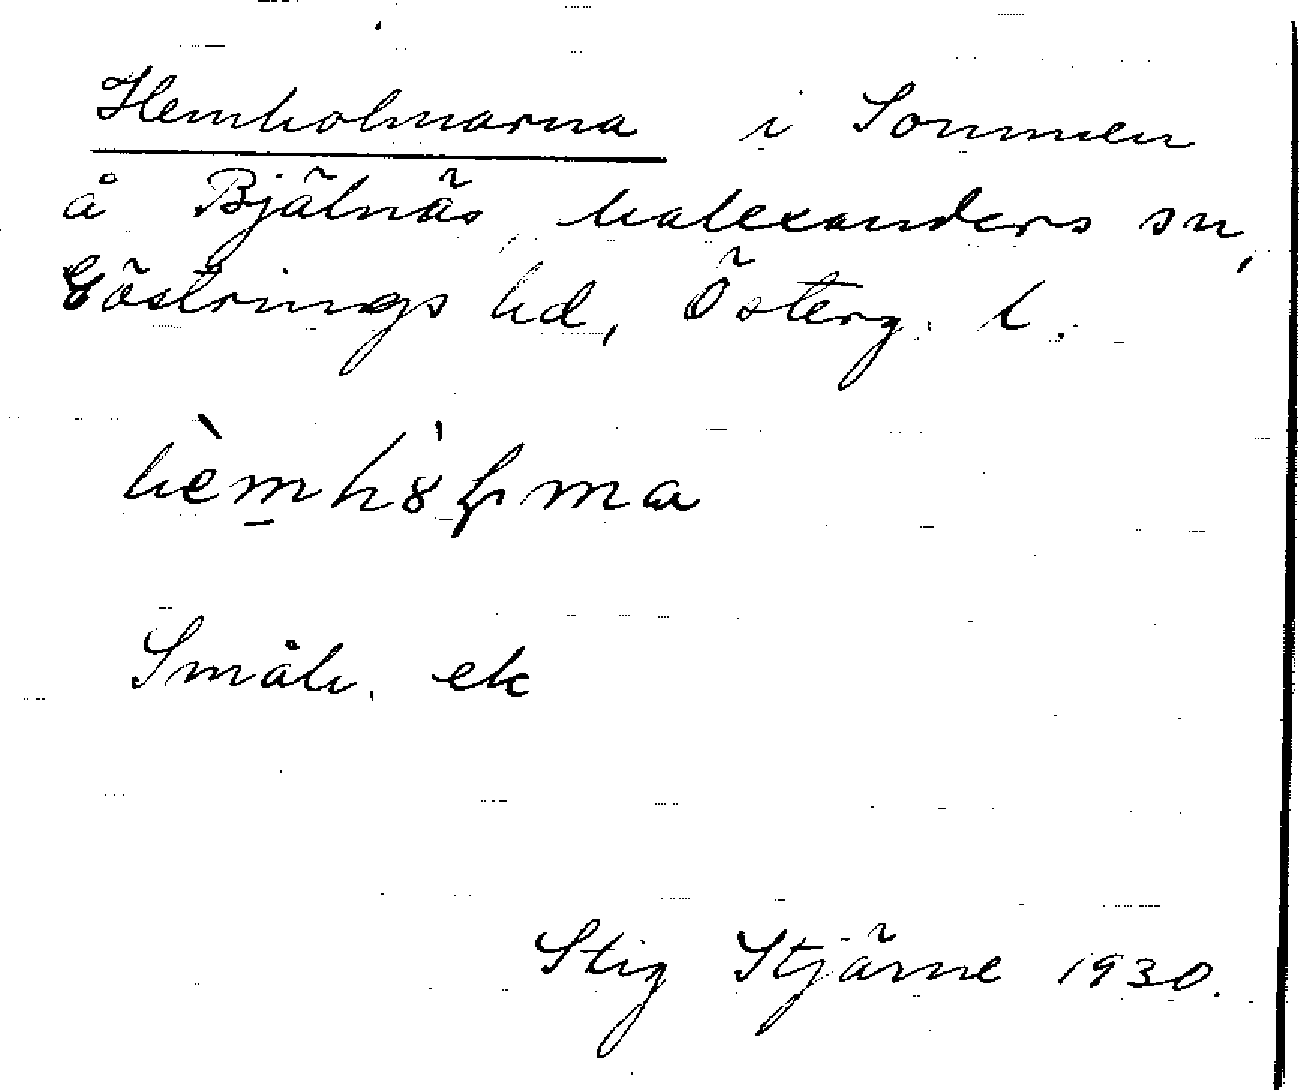 Hemholmarna i Sommen
å Bjälnäs, Malexanders sn,
Göstrings hd, Österg. l.
Småh. ek
Stig Stjärne 1930.